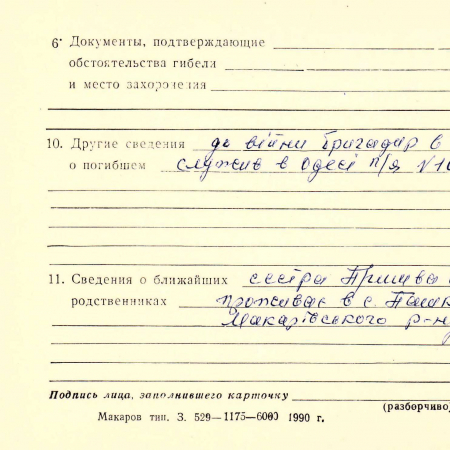 6. Документы, подтверждающие
обстоятельства гибели
и место захоронения
10. Другие сведения до війни бригадир в
о погибшем служив в Одесі п/я №
11. Сведения о ближайших сестра
родственниках проживає в с.
Макарівського р-н
Подпись лица, заполнившего карточку
(разборчиво)
Макаров тип. З. 529—1175—6000 1990 г.